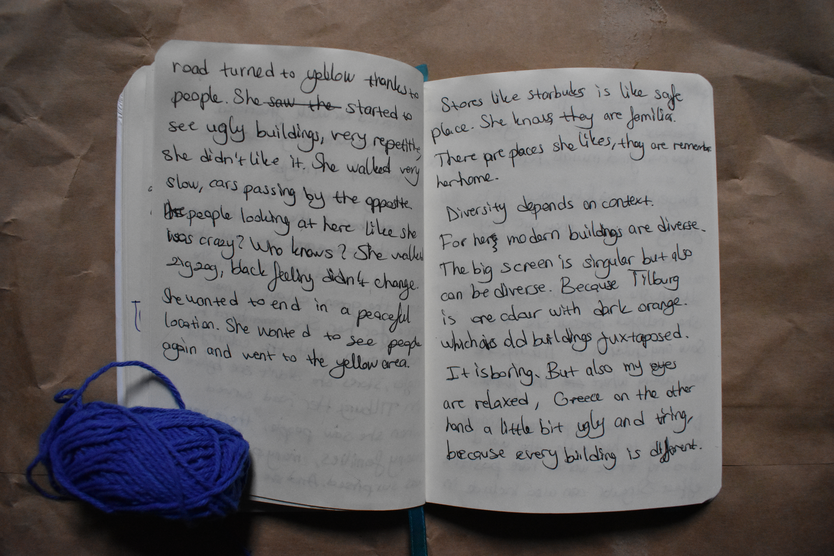 road turned to yellow thanks to
people. She saw the started to
see ugly buildings, very repetitive,
she didn't like it. She walked very
slow, cars passing by the opposite.
people looking at here like she
was crazy? Who knows? She walked
zigzag, black feeling didn't change.
She wanted to end in a peaceful
location. She wanted to see people
again and went to the yellow area.
Stores like starbucks is like safe
place. She knows they are familiar.
There are places she likes, they are remember
her home.
Diversity depends on context.
For hers modern buildings are diverse.
The big screen is singular but also
can be diverse. Because Tilburg
is one colour with dark orange.
which is old buildings juxtaposed.
It is boring. But also my eyes
are relaxed, Greece on the other
hand a little bit ugly and tiring,
because every building is different.